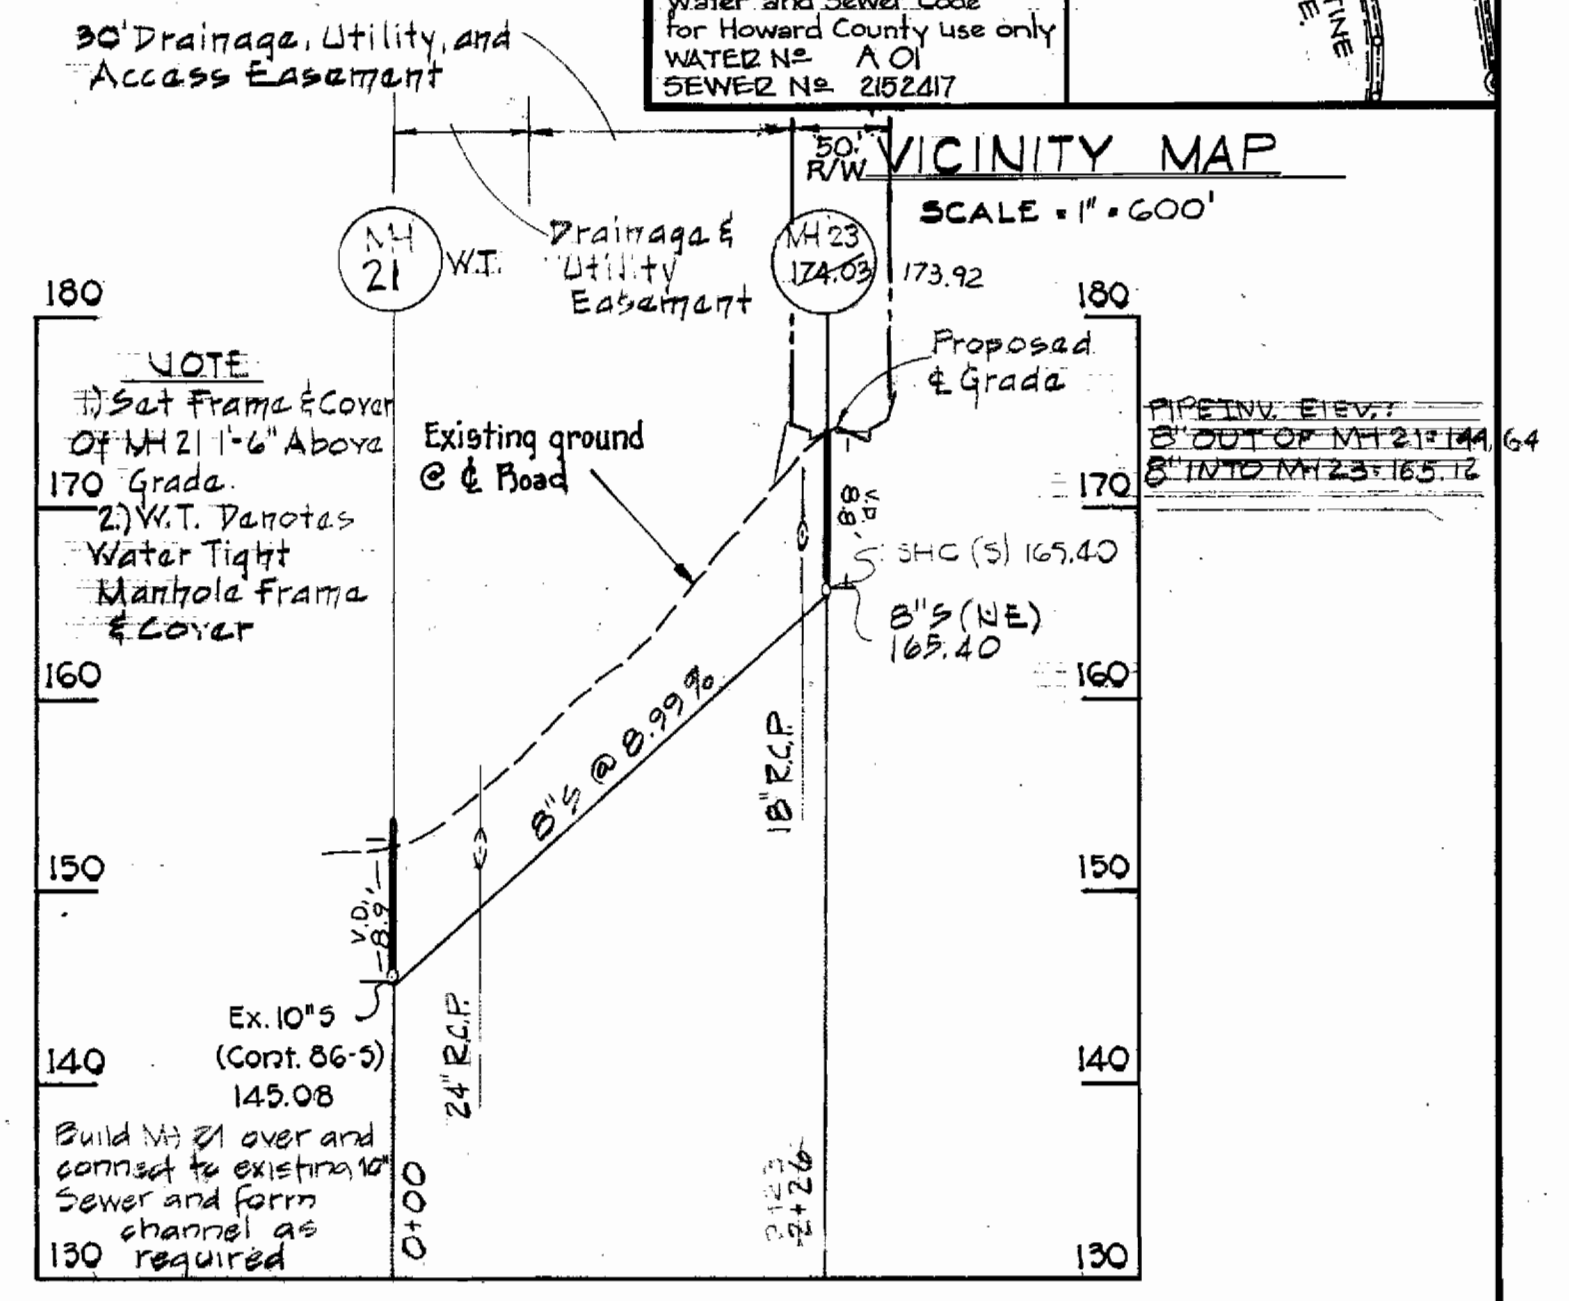 Water and Sewer Code
for Howard County use only
WATER Nº A 01
SEWER Nº 2152417
TINE
E.
30' Drainage, Utility, and
Access Easement
50'
R/W
VICINITY MAP
SCALE = 1" = 600'
MH
21
W.T.
Drainage &
Utility
Easement
MH 23
174.03
173.92
180
180
NOTE
1.) Set Frame & Cover
Of MH 21 1'-6" Above
Grade.
2.) W.T. Denotes
Water Tight
Manhole Frame
& Cover
Existing ground
@ ℄ Road
Proposed
℄ Grade
PIPE INV. ELEV.:
8" OUT OF MH 21 = 144.64
8" INTO MH 23 = 165.12
170
170
V.D.
8.8'
SHC (S) 165.40
8"S (NE)
165.40
160
160
8"S @ 8.99%
18" R.C.P.
150
150
V.D.
8.9'
Ex. 10"S
(Cont. 86-S)
145.08
24" R.C.P.
140
140
Build MH 21 over and
connect to existing 10"
Sewer and form
channel as
required
0+00
2+26
130
130